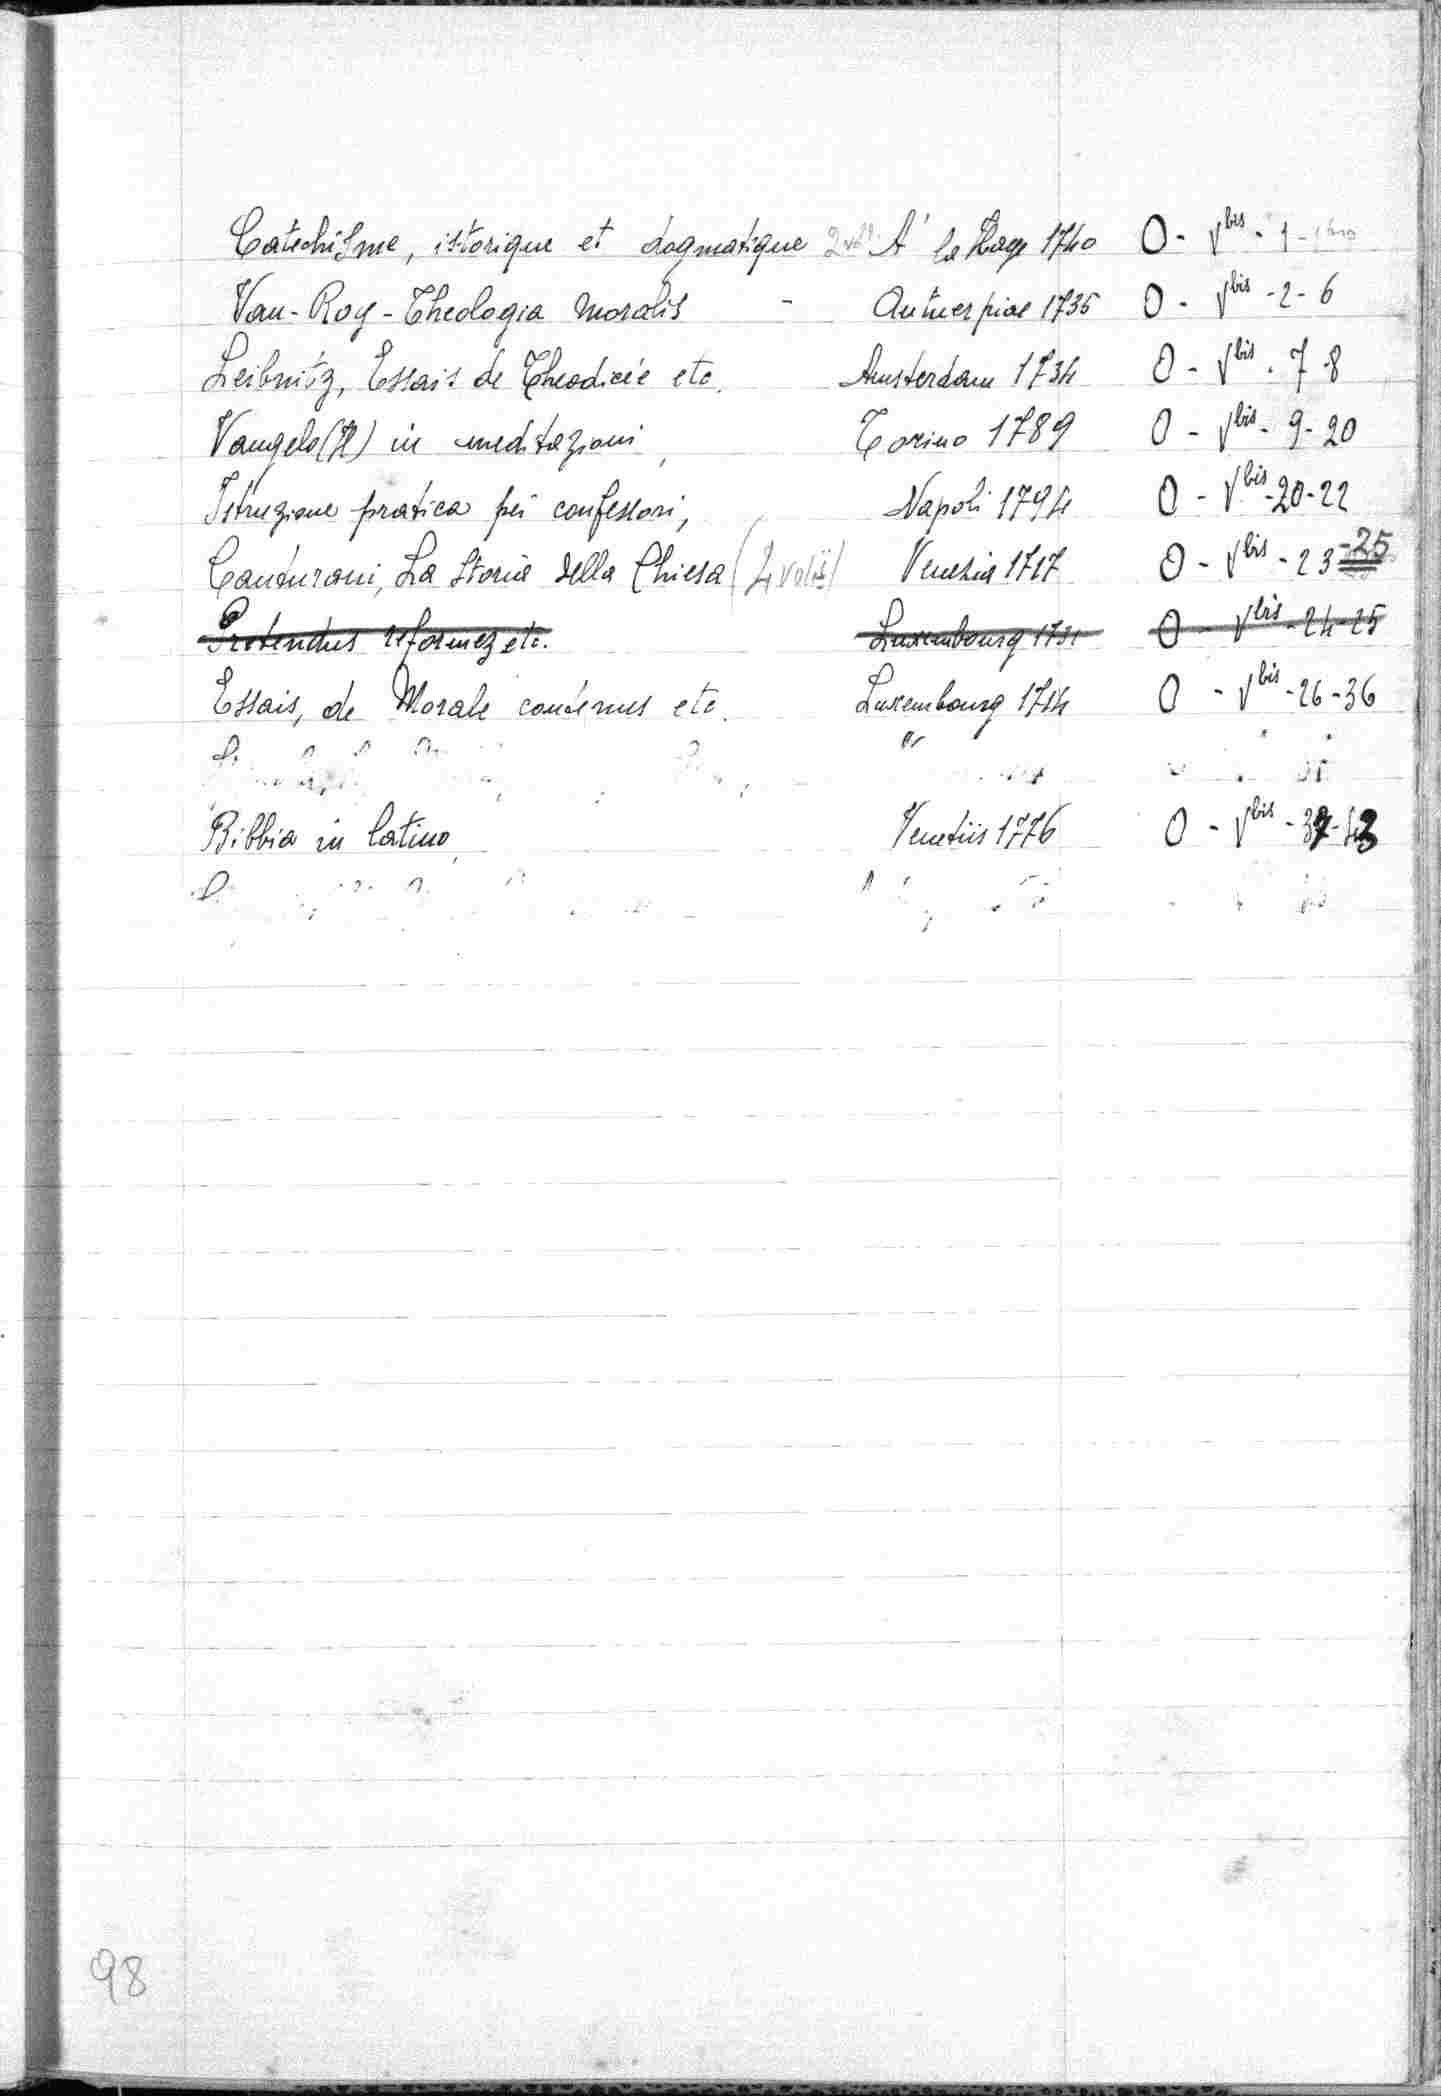 Catechisme, istorique et dogmatique 2 voll. A' la Haye 1740 O - V bis - 1 -
Van-Roy - Theologia Moralis - Antuerpiae 1735 O - V bis - 2 - 6
Leibnitz, Essais de Theodicée etc. Amsterdam 1734 O - V bis - 7 - 8
Vangelo (Il) in meditazioni, Torino 1789 O - V bis - 9 - 20
Istruzione pratica pei confessori, Napoli 1794 O - V bis - 20 - 22
Canturani, La Storia della Chiesa (4 voll) Venezia 1717 O - V bis - 23 - 25
Pretendus reformez etc. Luxembourg 1731 O - V bis - 24 - 25
Essais, de Morale contenus etc. Luxembourg 1714 O - V bis - 26 - 36
Bibbia in latino, Venetiis 1776 O - V bis - 37 - 43
98